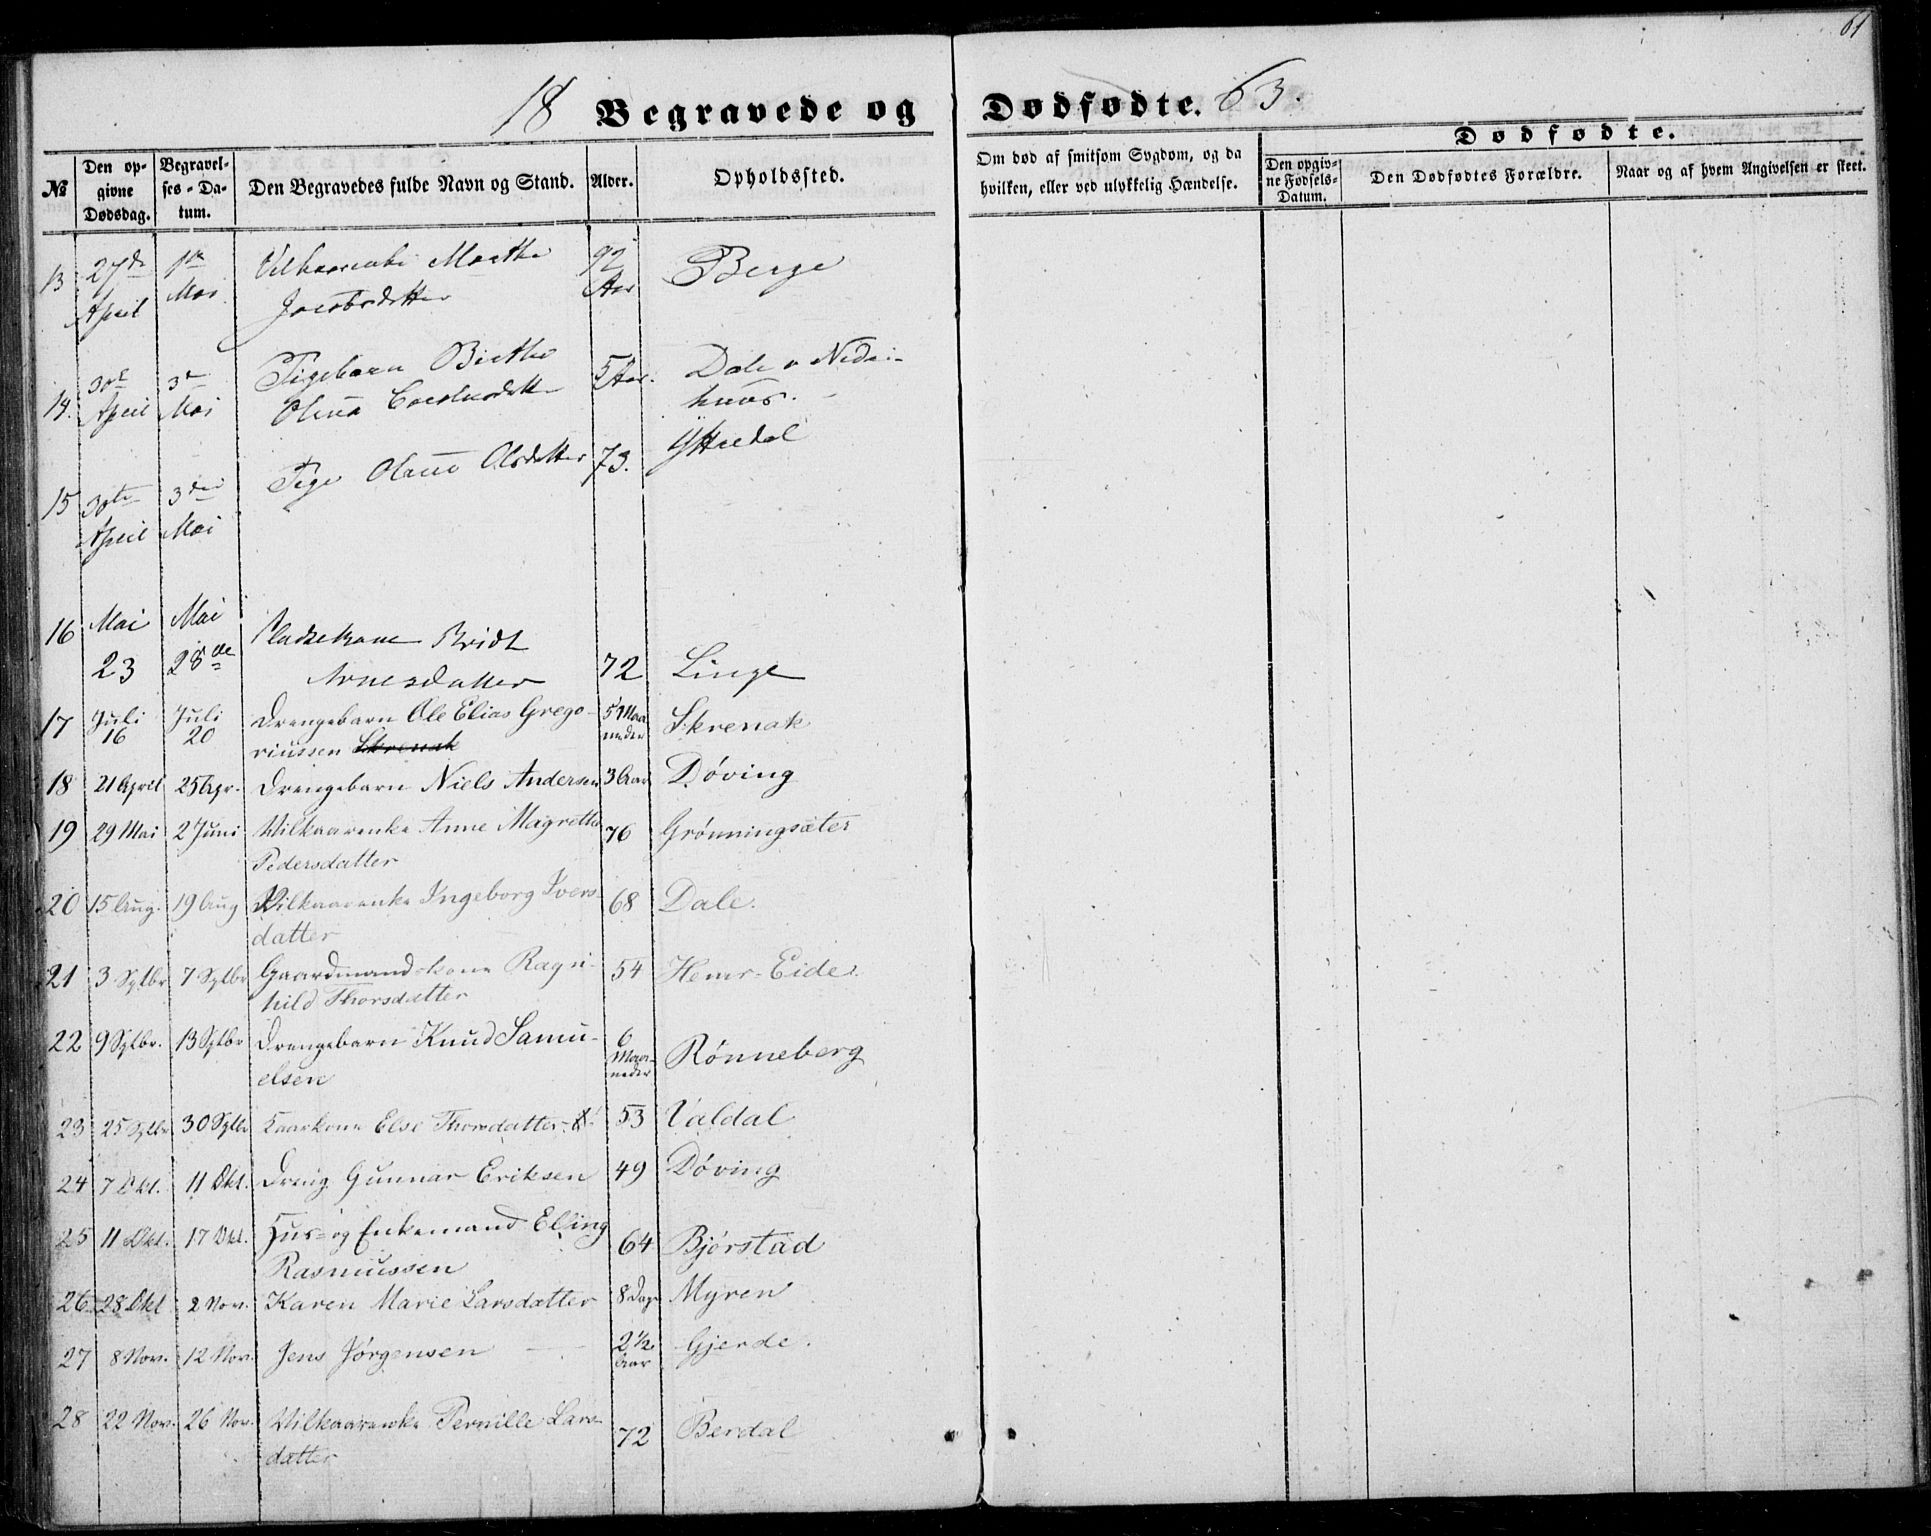 61
18 Begravede og Dødfødte. 63.
№
Den op-
givne
Dødsdag.
Begravel-
ses-Da-
tum.
Den Begravedes fulde Navn og Stand.
Alder.
Opholdssted.
Om død af smitsom Sygdom, og da
hvilken, eller ved ulykkelig Hændelse.
Dødfødte.
Den opgiv-
ne Fødsels-
Datum.
Den Dødfødtes Forældre.
Naar og af hvem Angivelsen er skeet.
13 27de 1ste Vilkaarenke Marthe 92 Berge
April Mai Jacobsdatter Aar
14. 30te 3die Pigebarn Birthe 5 Aar. Dale
April Mai Olina
15 30te 3die Pige Olsdatter 73. Yttredal
April Mai
16 Mai Mai Pladsekone Bridt
23 28de Arnesdatter 72 Linge
17 Juli Juli Drengebarn Ole Elias Grego- 5 Maa- Skrenak
16 20 riussen Skrenak neder
18 21 April 25 Apr. Drengebarn Niels Andersen 3 Aar Døving
19 29 Mai 2 Juni Vilkaarenke Anne Magrethe 76 Grønningsæter
Pedersdatter
20 15 Aug. 19 Aug Vilkaarenke Ingeborg Ivers- 68 Dale.
datter
21 3 Sptbr 7 Sptbr Gaardmandskone Ragn- 54 Hemr-Eide.
hild Thorsdatter
22 9 Sptbr. 13 Sptbr Drengebarn Knud Samu- 6 Maa- Rønneberg
elsen neder
23 25 Sptbr 30 Sptbr Kaarkone Else Thorsdatter 53 Valdal
24 7 Okt. 11 Okt. Dreng Gunnar Eriksen 49 Døving
25 11 Okt. 17 Okt. Hus- og Enkemand Eling 64 Bjørstad
Rasmussen
26 28 Okt 2 Nov. Karen Marie Larsdatter 8 Dage Myren
27 8 Nov. 12 Nov. Jens Jørgensen 2½ Aar Gjerde.
28 22 Nov. 26 Nov. Vilkaarenke Pernille Lars- 72 Berdal
datter